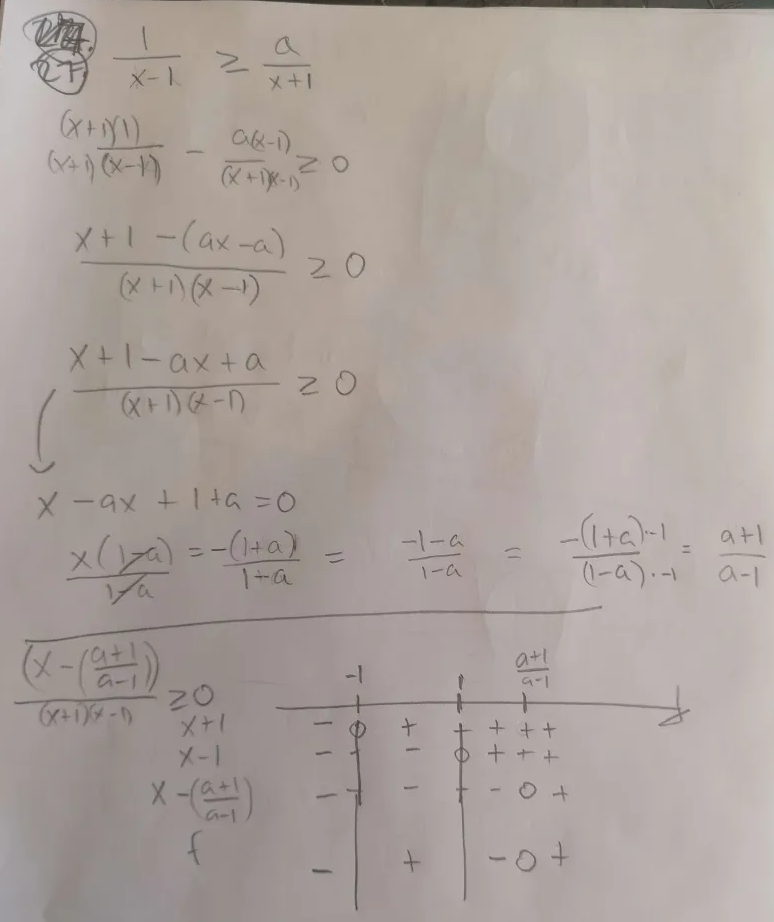 27. 1/(x-1) ≥ a/(x+1)
(x+1)(1)/((x+1)(x-1)) - a(x-1)/((x+1)(x-1)) ≥ 0
(x+1-(ax-a))/((x+1)(x-1)) ≥ 0
(x+1-ax+a)/((x+1)(x-1)) ≥ 0
x-ax+1+a=0
x(1-a)/(1-a) = -(1+a)/(1-a) = (-1-a)/(1-a) = (-(1+a)·-1)/((1-a)·-1) = (a+1)/(a-1)
(x-((a+1)/(a-1)))/((x+1)(x-1)) ≥ 0
-1 1 (a+1)/(a-1)
x+1 - 0 + + + + +
x-1 - - - 0 + + +
x-((a+1)/(a-1)) - - - - - 0 +
f - + - 0 +